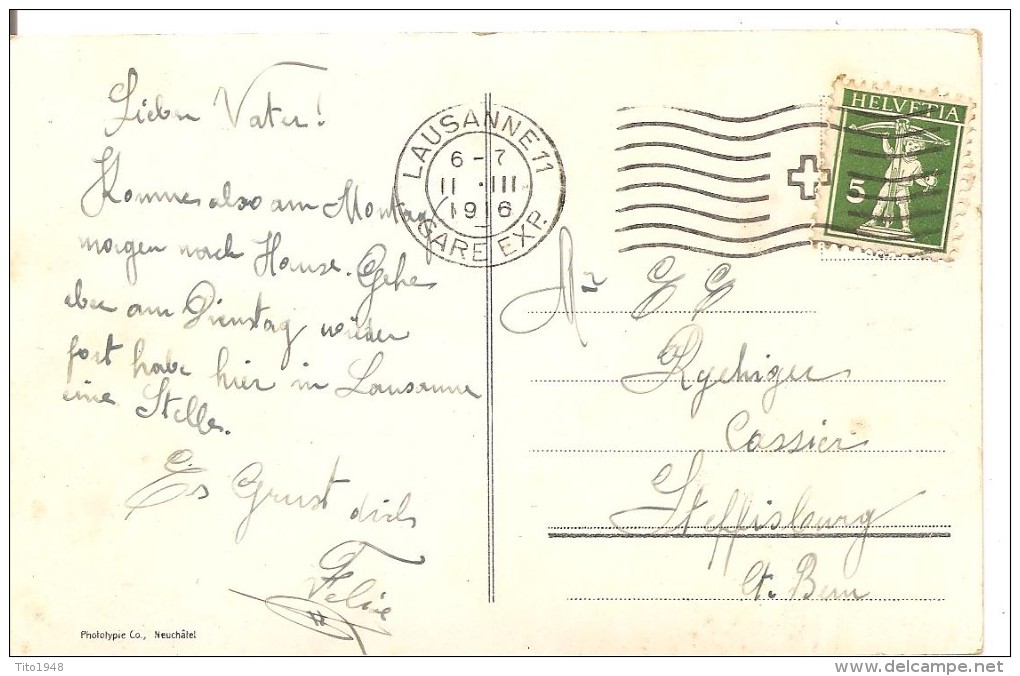 Lieber Vater!
Komme also am Montag
morgen nach Hause. Gehe
aber am Dienstag wieder
fort habe hier in Lausanne
eine Stelle.
Es Grüsst dich
Felix
Phototypie Co., Neuchâtel
LAUSANNE 11
6-7
11.III
1916
GARE EXP.
HELVETIA
5
Mr E E
Rychiger
Cassier
Steffisburg
Ct. Bern
Tito1948
delcampe.net